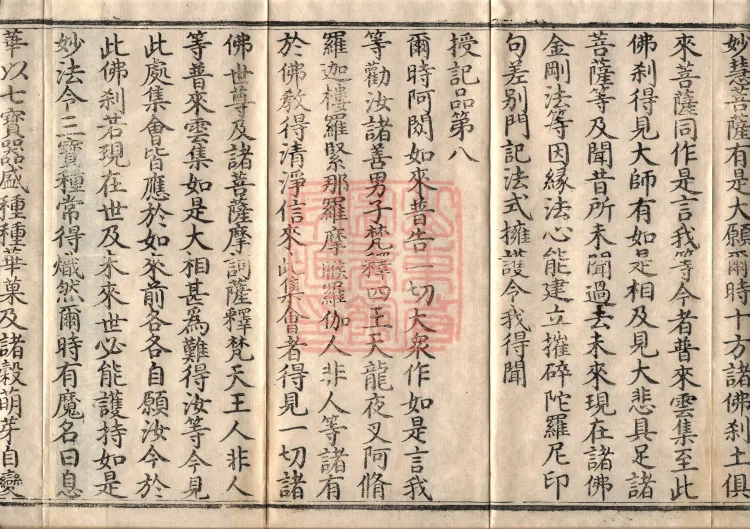 妙慧菩薩有是大願爾時十方諸佛刹土俱
來菩薩同作是言我等今者普來雲集至此
佛刹得見大師有如是相及見大悲具足諸
菩薩等及聞昔所未聞過去未來現在諸佛
金剛法等因緣法心能建立摧碎陀羅尼印
句差別門記法式擁護令我得聞
授記品第八
爾時阿閦如來普告一切大衆作如是言我
等勸汝諸善男子梵釋四王天龍夜叉阿脩
羅迦樓羅緊那羅摩睺羅伽人非人等諸有
於佛敎得清淨信來此集會者得見一切諸
佛世尊及諸菩薩摩訶薩釋梵天王人非人
等普來雲集如是大相甚爲難得汝等今見
此處集會皆應於如來前各各自願汝今於
此佛刹若現在世及未來世必能護持如是
妙法令三寶種常得熾然爾時有魔名曰息
華以七寶器盛種種華菓及諸穀萌芽自變